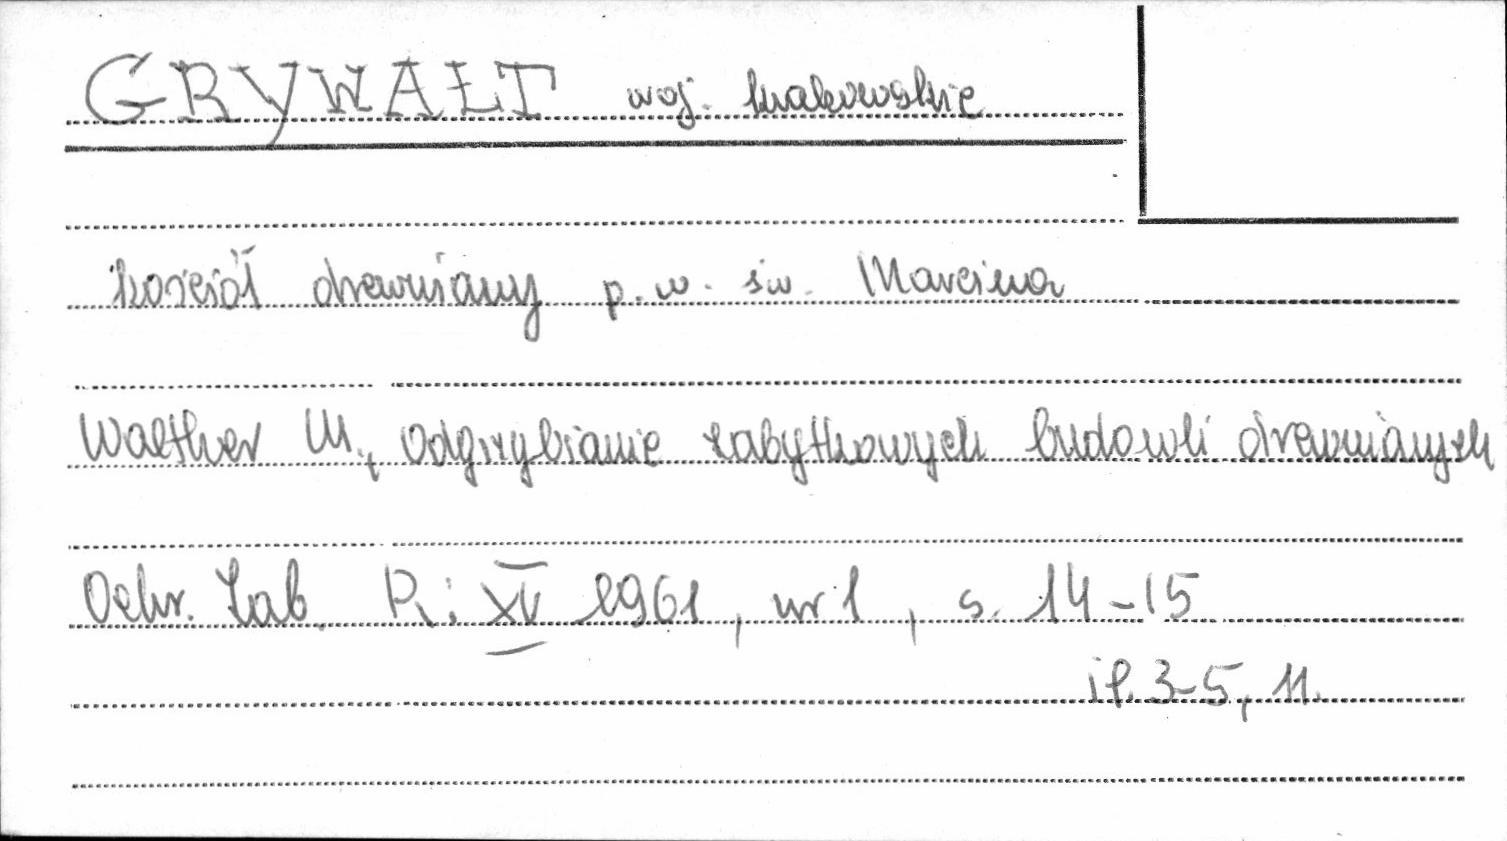 GRYWAŁT woj. krakowskie
kościół drewniany p.w. św. Marcina
Walther M., Odgrzybianie zabytkowych budowli drewnianych
Ochr. Zab. R: XIV 1961, nr 1, s. 14-15
il. 3-5, 11.